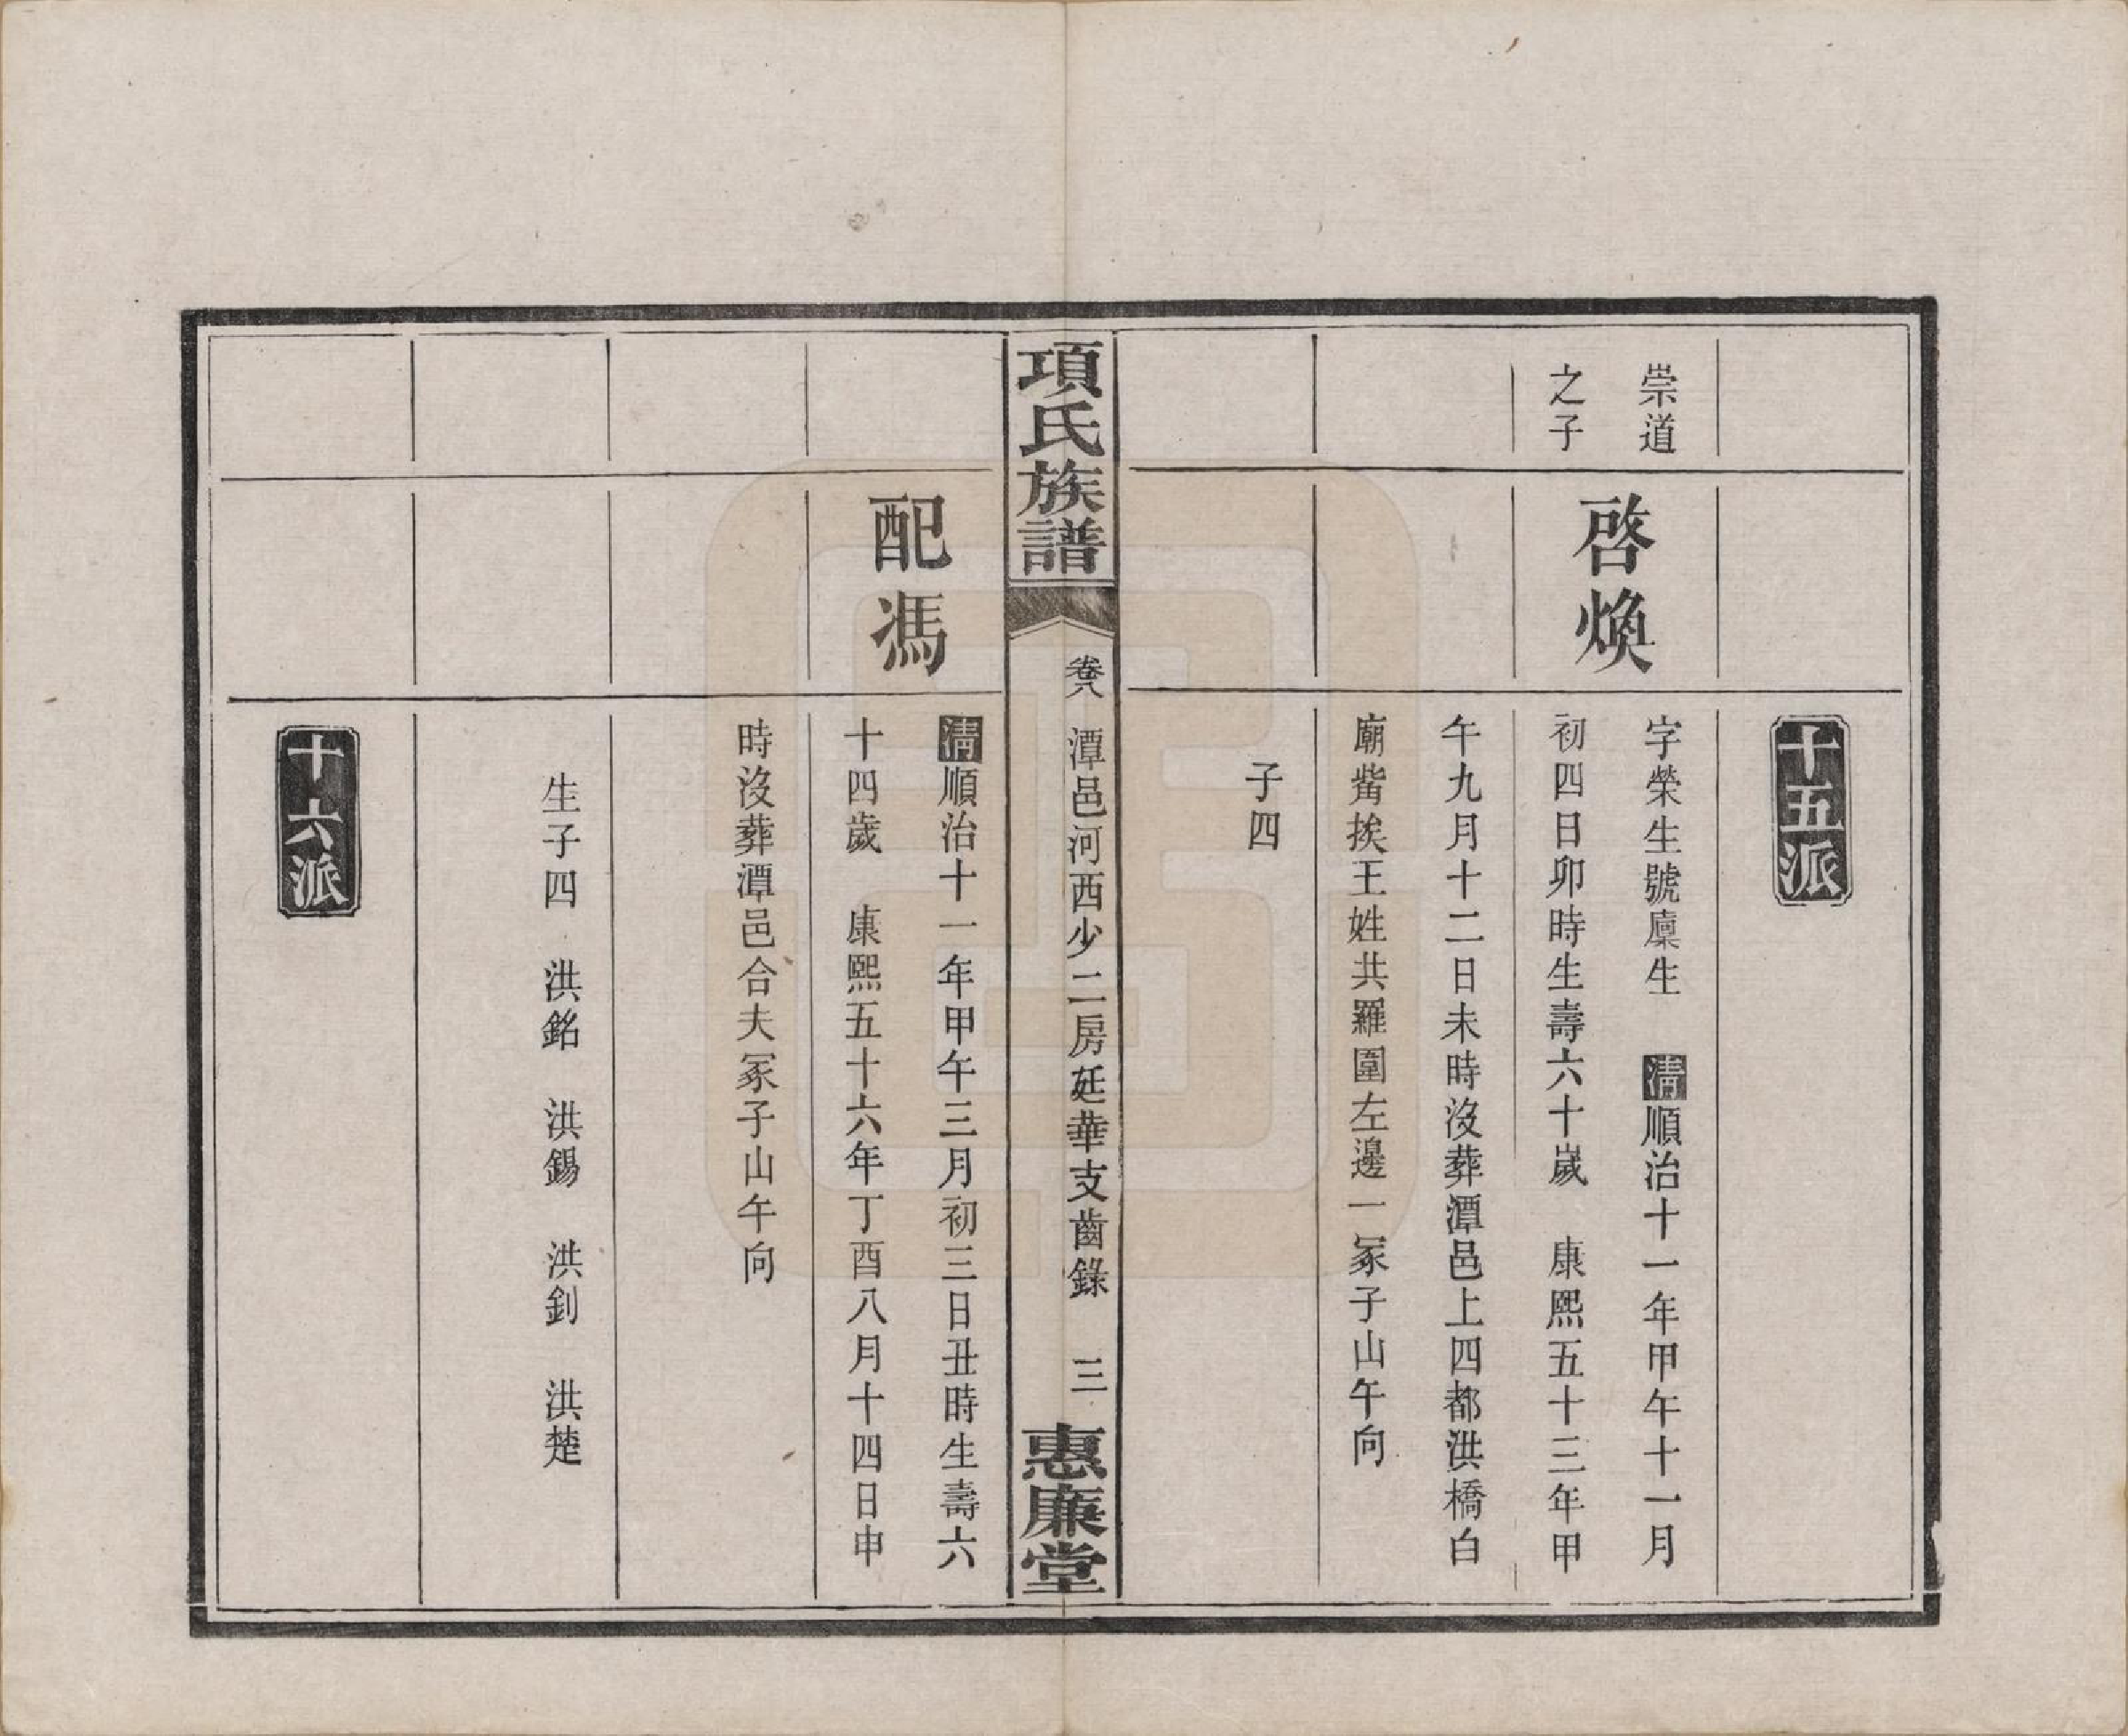 十五派
崇道
之子
啓煥
字榮生號廩生　清順治十一年甲午十一月
初四日卯時生壽六十歲　康熙五十三年甲
午九月十二日未時沒葬潭邑上四都洪橋白
廟觜挨王姓共羅圍左邊一冢子山午向
子四
項氏族譜
卷八
潭邑河西少二房廷華支齒錄
三
惠廉堂
配馮
清順治十一年甲午三月初三日丑時生壽六
十四歲　康熙五十六年丁酉八月十四日申
時沒葬潭邑合夫冢子山午向
生子四　洪銘　洪錫　洪釗　洪楚
十六派